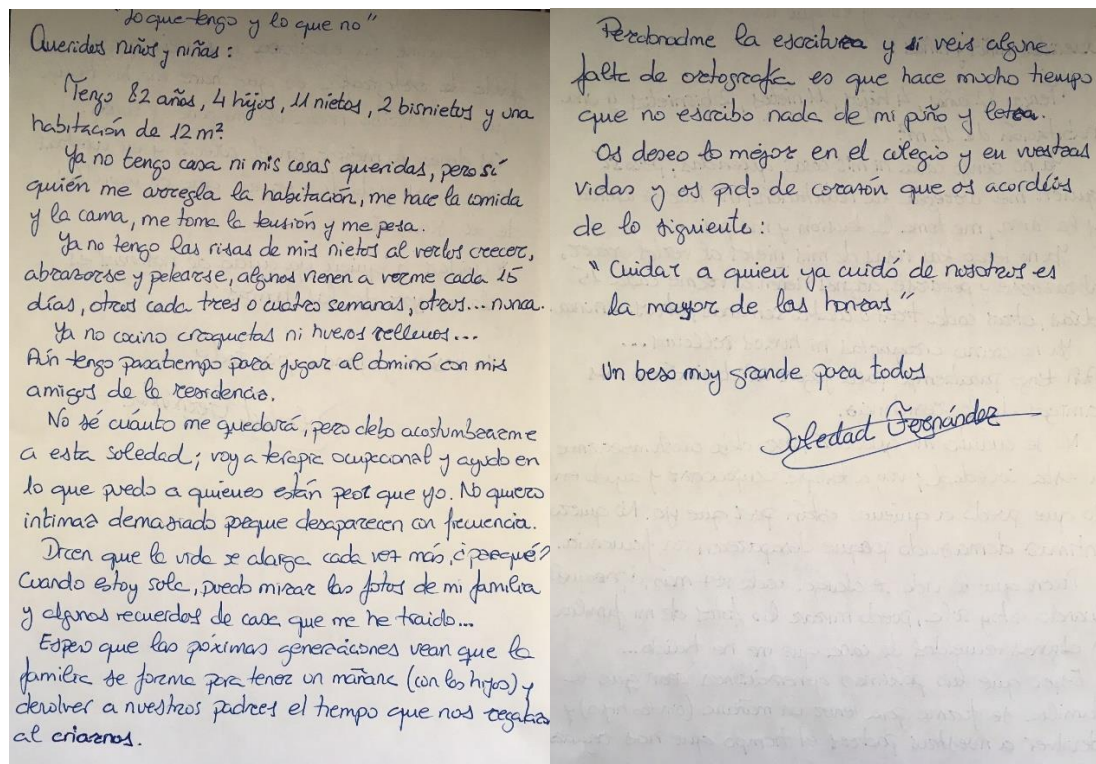 "Lo que tengo y lo que no"
Queridos niños y niñas:
Tengo 82 años, 4 hijos, 11 nietos, 2 bisnietos y una
habitación de 12 m².
Ya no tengo casa ni mis cosas queridas, pero sí
quién me arregla la habitación, me hace la comida
y la cama, me toma la tensión y me pesa.
Ya no tengo las risas de mis nietos al verlos crecer,
abrazarse y pelearse, algunos vienen a verme cada 15
días, otros cada tres o cuatro semanas, otros... nunca.
Ya no cocino croquetas ni huevos rellenos...
Aún tengo pasatiempo para jugar al dominó con mis
amigos de la residencia.
No sé cuánto me quedará, pero debo acostumbrarme
a esta soledad; voy a terapia ocupacional y ayudo en
lo que puedo a quienes están peor que yo. No quiero
intimar demasiado porque desaparecen con frecuencia.
Dicen que la vida se alarga cada vez más, ¿porqué?
Cuando estoy sola, puedo mirar las fotos de mi familia
y algunos recuerdos de casa que me he traido...
Espero que las póximas generaciones vean que la
familia se forma para tener un mañana (con los hijos) y
devolver a nuestros padres el tiempo que nos regalan
al criarnos.
Perdonadme la escritura y si veis alguna
falta de ortografía es que hace mucho tiempo
que no escribo nada de mi puño y letra.
Os deseo lo mejor en el colegio y en vuestras
vidas y os pido de corazón que os acordéis
de lo siguiente:
"Cuidar a quien ya cuidó de nosotros es
la mayor de las honras"
Un beso muy grande para todos
Soledad Fernández